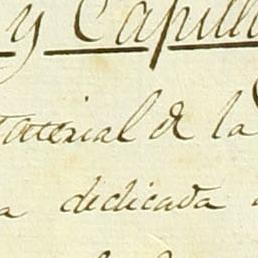 y Capill
aterial de la
a dedicada